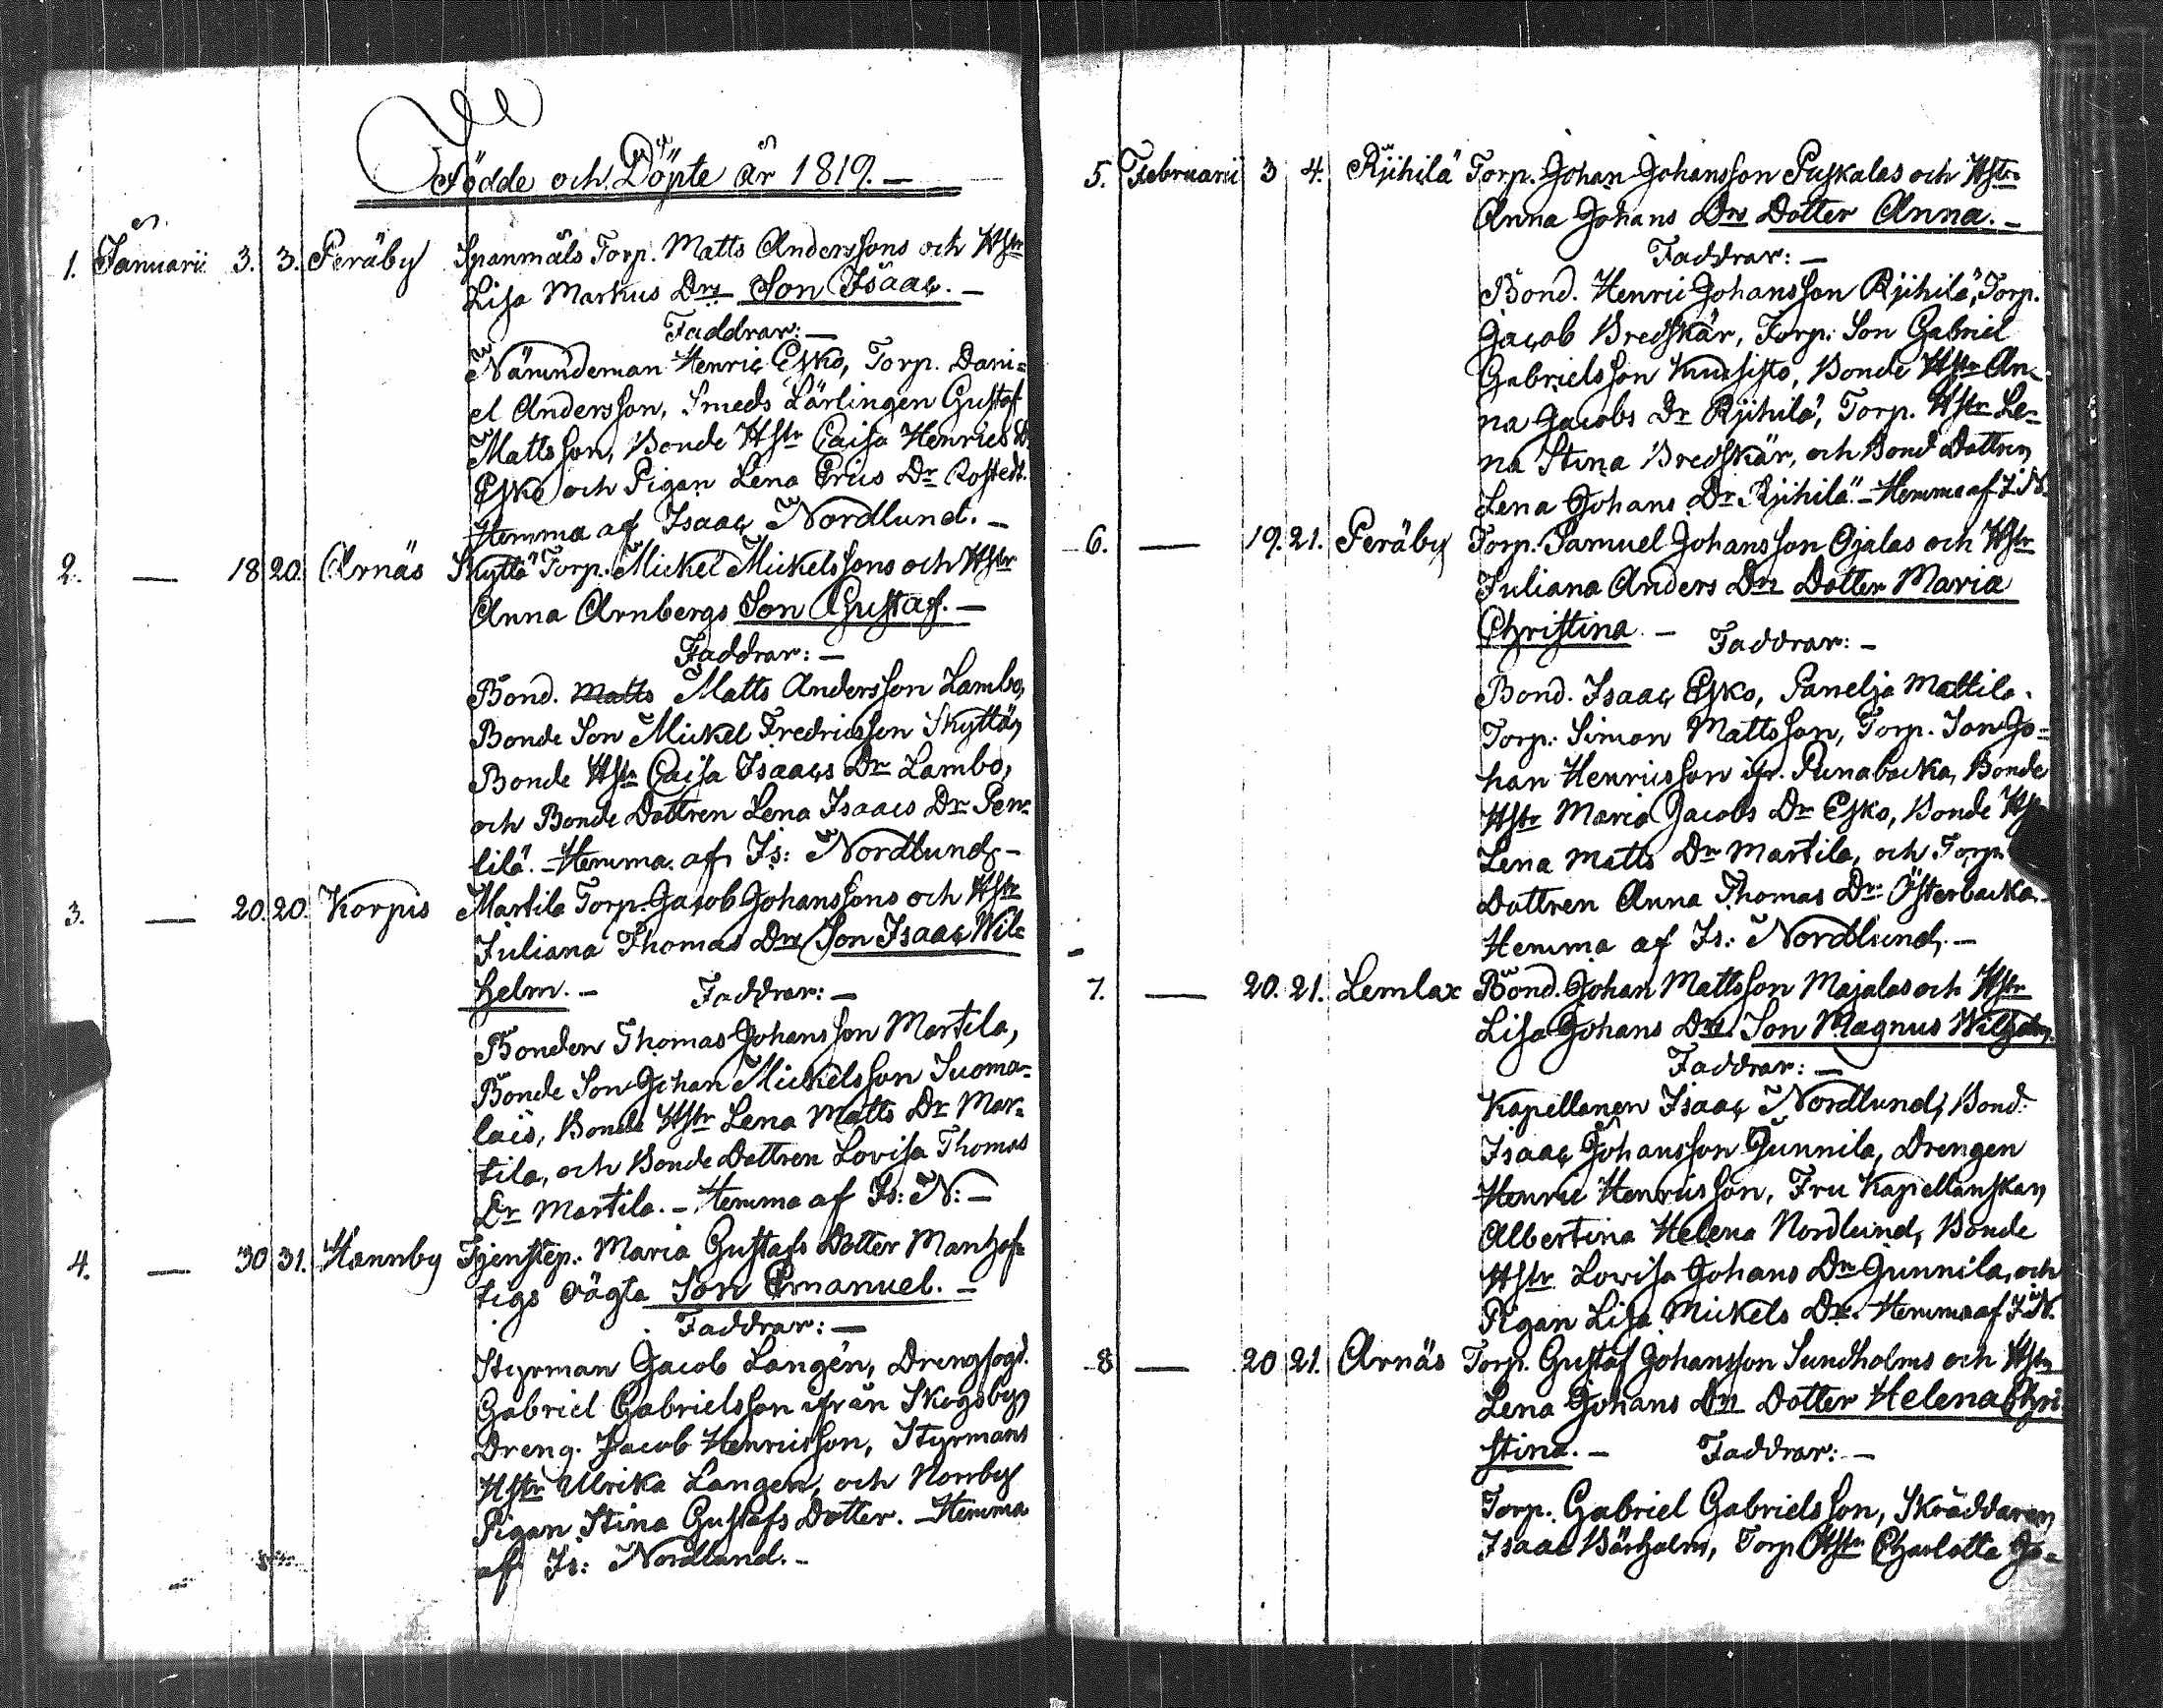 Födde och Döpte År 1819. —
1. Januarii 3. 3. Peräby Spanmåls Torp. Matts Anderssons och Hstr
Lisa Markus Drs Son Isaac. —
Faddrar: —
Nämndeman Henric Esko, Torp. Dani=
el Andersson, Smeds Lärlingen Gustaf
Mattsson, Bonde Hstr Caisa Henrics D.
Esko och Pigan Lena Erics Dr Rostedt.
Hemma af Isaac Nordlund. —
2. — 18 20. Arnäs Skyttä Torp. Mickel Mickelssons och Hstr
Anna Arnbergs Son Gustaf. —
Faddrar: —
Bond. Matts Matts Andersson Lambo,
Bonde Son Mickel Fredricsson Skyttä,
Bonde Hstr Caisa Isaacs Dr Lambo,
och Bonde Dottren Lena Isaacs Dr Pen=
tilä. — Hemma af Is: Nordlund. —
3. — 20. 20. Korpis Martila Torp. Jacob Johanssons och Hstr
Juliana Thomas Drs Son Isaac Wil=
helm. — Faddrar: —
Bonden Thomas Johansson Martila,
Bonde Son Johan Mickelsson Suoma=
lais, Bonde Hstr Lena Matts Dr Mar=
tila, och Bonde Dottren Lovisa Thomas
Dr Martila. — Hemma af Is: N: —
4. — 30 31. Hannby Tjenstep. Maria Gustafs Dotter Manhaf=
tigs oägta Son Emanuel. —
Faddrar: —
Styrman Jacob Langén, Drengfogd.
Gabriel Gabrielsson ifrån Skogsby,
Dreng. Jacob Henricsson, Styrmans
Hstr Ulrika Langen, och Norrby
Pigan Stina Gustafs Dotter. — Hemma
af Is: Nordlund. —
5. Februarii 3 4. Rjihilä Torp. Johan Johansson Puskalas och Hstr
Anna Johans Drs Dotter Anna. —
Faddrar: —
Bond. Henric Johansson Rjihilä, Torp.
Jacob Bredskär, Torp. Son Gabriel
Gabrielsson Kuusisto, Bonde Hstr An=
na Jacobs Dr Rjihilä, Torp. Hstr Le=
na Stina Bredskär, och Bond Dottren
Lena Johans Dr Rjihilä. — Hemma af I. N.
6. — 19. 21. Peräby Torp. Samuel Johansson Ojalas och Hstr
Juliana Anders Drs Dotter Maria
Christina. — Faddrar: —
Bond. Isaac Esko, Panelja Mattila
Torp. Simon Mattsson, Torp. Son Jo=
han Henricsson ifr. Punabacka, Bonde
Hstr Maria Jacobs Dr Esko, Bonde Hstr
Lena Matts Dr Martila, och Torp.
Dottren Anna Thomas Dr Österbacka.
Hemma af Is: Nordlund. —
7. — 20. 21. Lemlax Bond. Johan Mattsson Majalas och Hstr
Lisa Johans Drs Son Magnus Wilhelm.
Faddrar: —
Kapellanen Isaac Nordlund, Bond.
Isaac Johansson Gunnila, Drengen
Henric Henricsson, Fru Kapellanskan
Albertina Helena Nordlund, Bonde
Hstr Lovisa Johans Dr Gunnila, och
Pigan Lisa Mickels Dr. Hemma af I. N.
8 — 20 21. Arnäs Torp. Gustaf Johansson Sundholms och Hstr
Lena Johans Drs Dotter Helena Chri=
stina. — Faddrar: —
Torp. Gabriel Gabrielsson, Skräddaren
Isaac Bärholm, Torp Hstr Charlotta Jo=